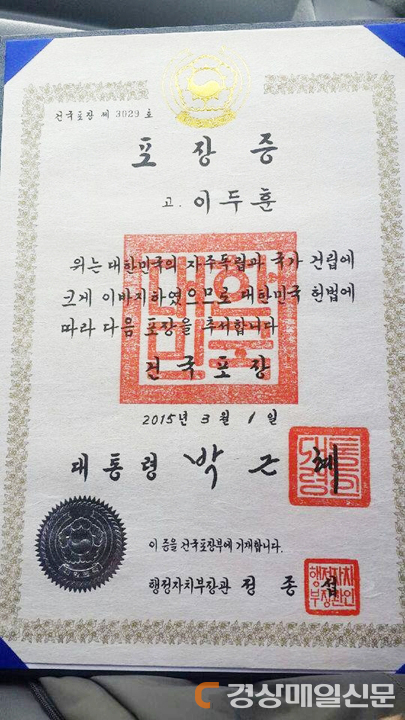 건국포장 제 3029 호
포 장 증
고. 이두훈
위는 대한민국의 자주독립과 국가 건립에
크게 이바지하였으므로 대한민국 헌법에
따라 다음 포장을 추서합니다
건 국 포 장
2015년 3월 1일
대통령 박근혜
이 증을 건국포장부에 기재합니다.
행정자치부장관 정종섭
행정자치
부장관인
경상매일신문